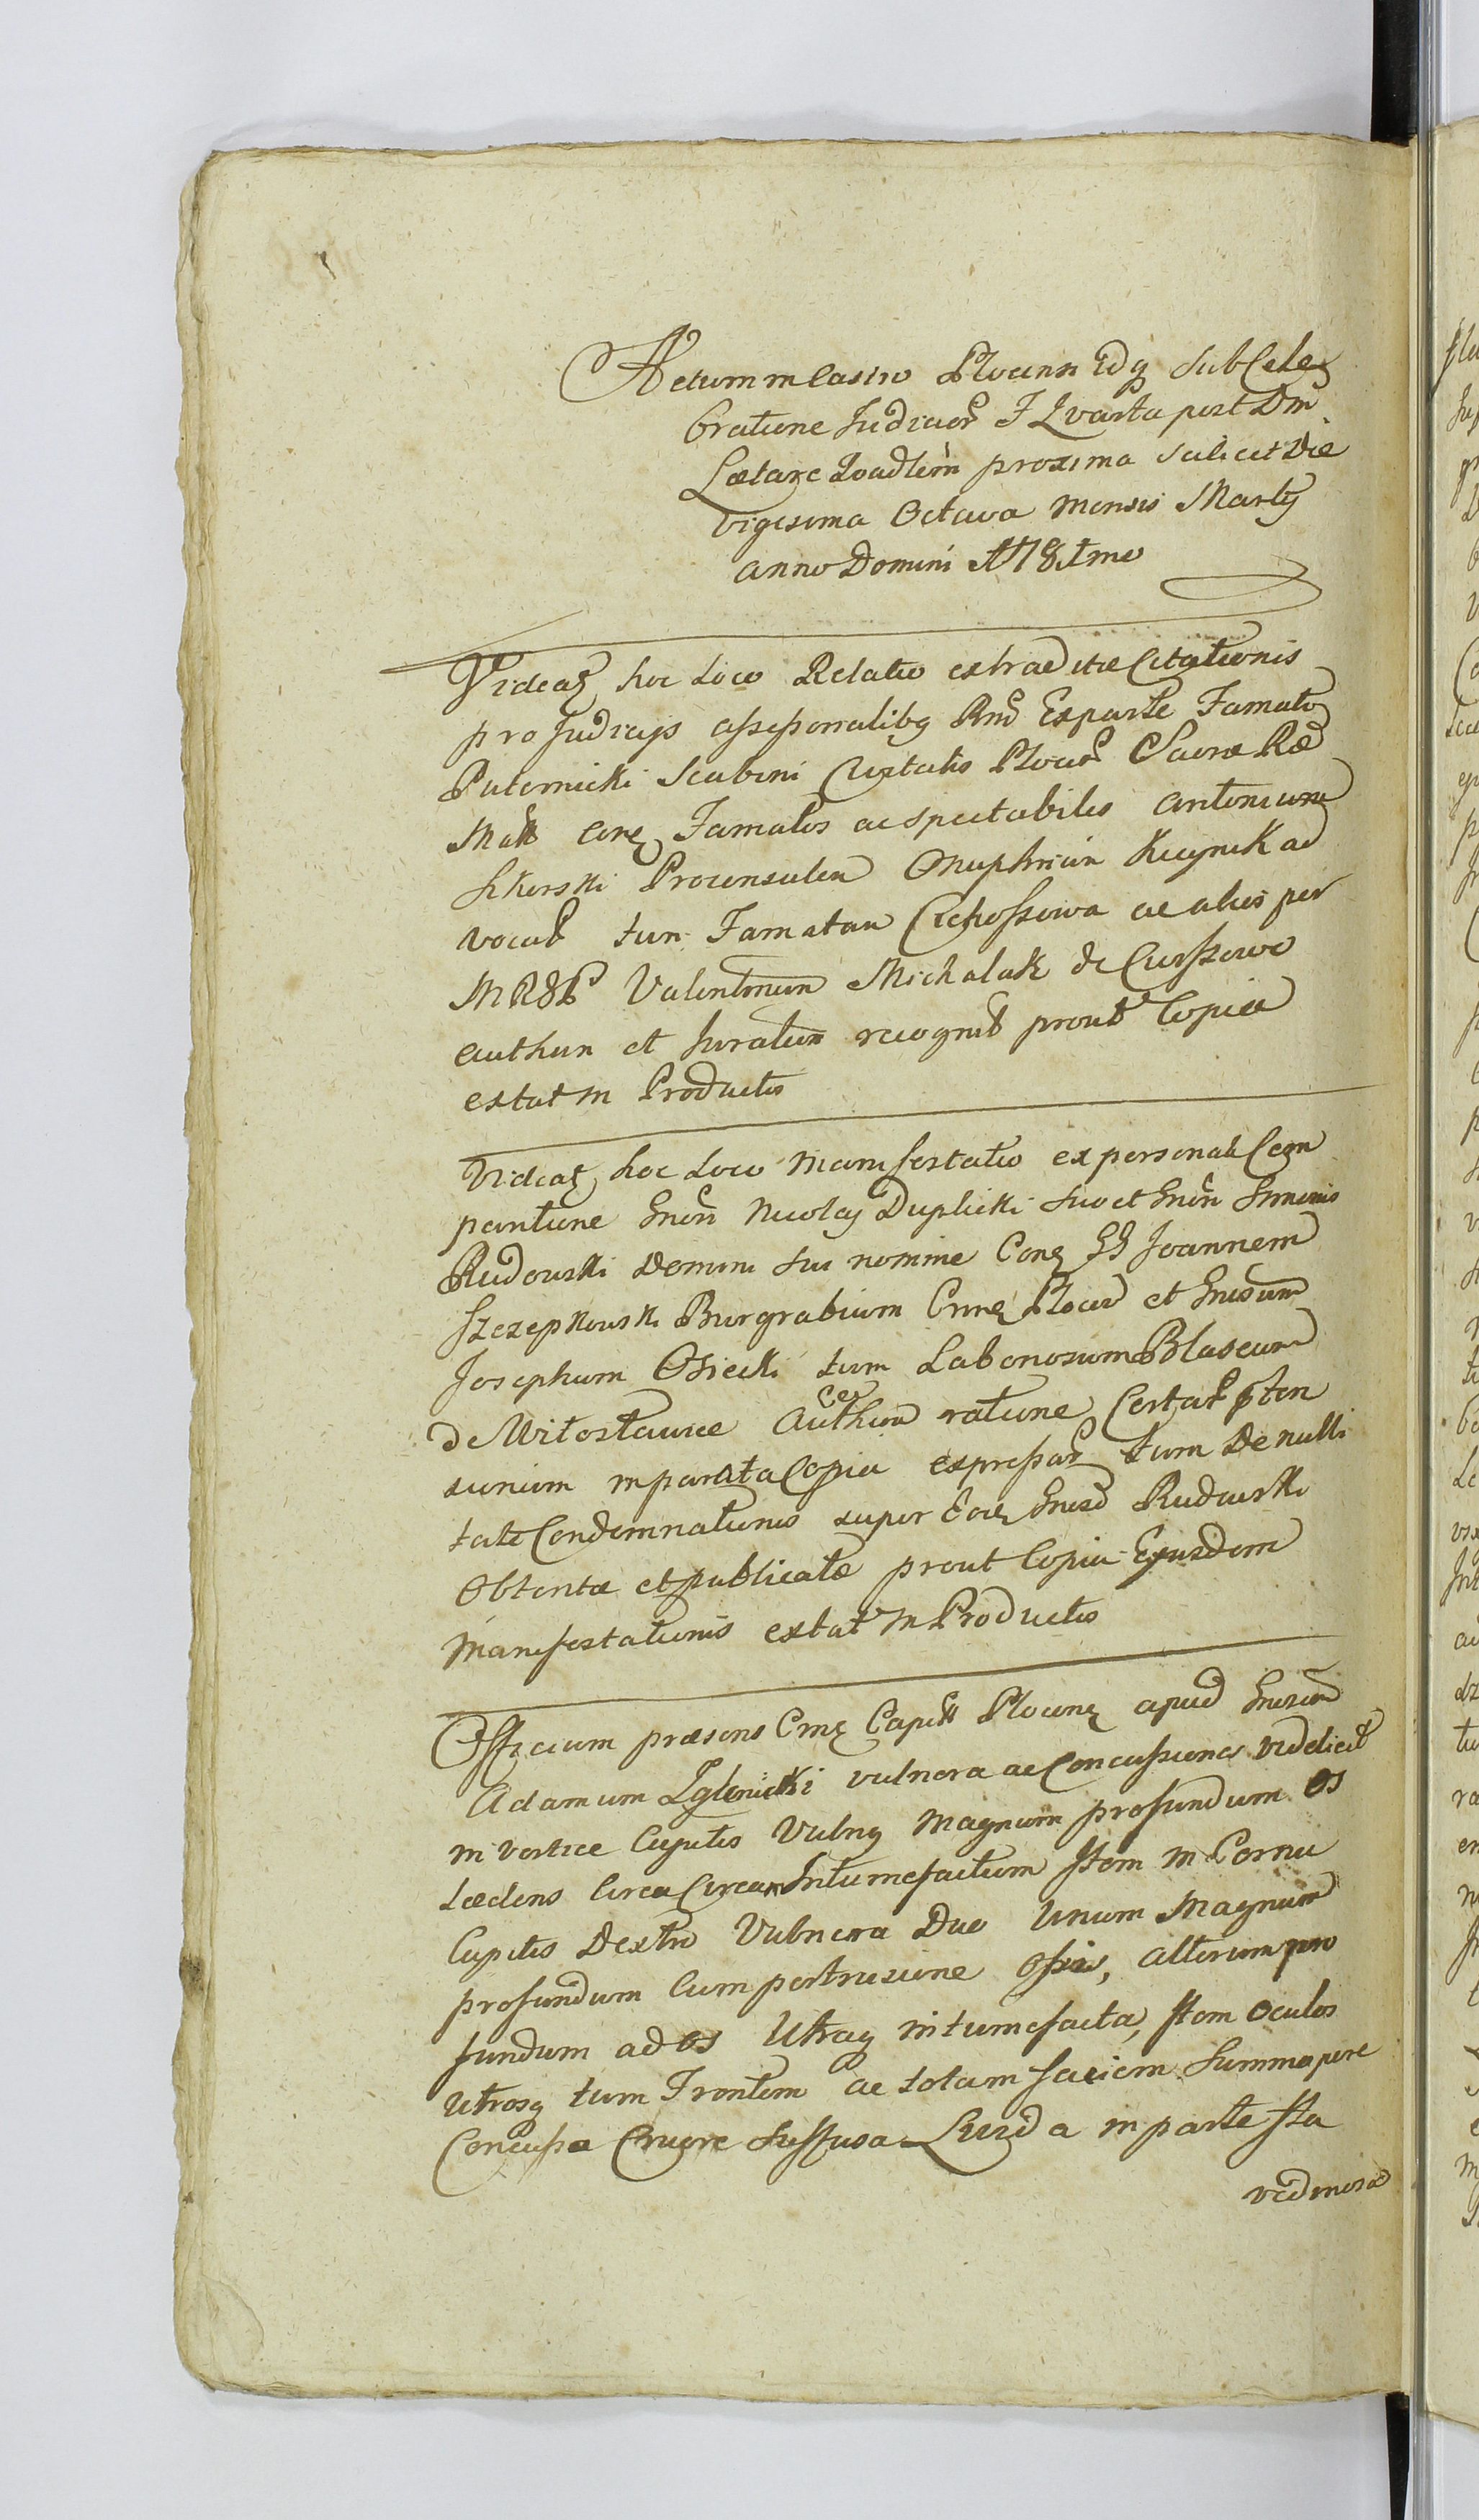 Actum in Castro Plocenn Idq sub Cele
bratione Judicior F Qvarta post Dm
Lætare Qoadlem proxima scilicet Die
vigesima Octava Mensis Martÿ
anno Domini
Videat hoc Loco Relatio extraditæ Citationis
pro Judicijs assessorialibq Rni Ex parte Famati
Paternicki Scabini Civitatis Plocen Sacræ Ræ
Mattis Cone Famatos ac spectabiles Antonium
Proconsulem Onuphrium ad
vocat tum Famatam ac alios per
Valentinum Michalak de
authum et Juratum recognit prout Copia
extat in Productis
Videat hoc Loco Manifestatio ex personali Com
paritione Gnosi Nicolaj Duplicki suo et Gnosi Simonis
Rudowski Domini sui nomine Cone GG Joannem
Szczepkowski Burgrabium Crme Plocen et Gnosum
Josephum Osiecki tum Laboriosum Blaseum
de Witosławice Authum ratione Certar pten
sionum in parata Copia expressar tum De nulli
tate Condemnationis super Eoe Gnoso Rudowski
Obtentæ et publicatæ prout Copia Ejusdem
Manifestationis extat in Productis
Officium præsens Crme Capitt Plocene apud Gnosum
Adamum Zglenicki vulnera ac Concussiones videlicet
in vertice Capitis Vulnq Magnum profundum Os
Lædens Circa Circa Intumefactum Item in Cornu
Capitis Dextro Vulnera Duo Unum Magnum
profundum Cum pertrusione Ossis, alterum pro
fundum ad os Utraq intumefacta, Item oculos
Utrosq tum Frontem ac totam faciem Summopere
Concussa Cruore Suffusa Livida in parte Ita